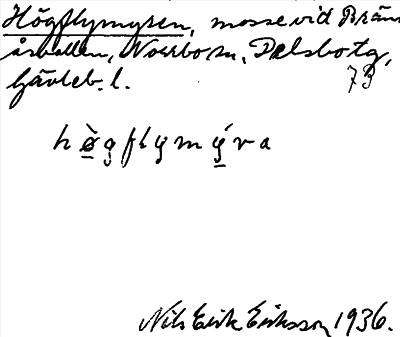 Högflymyren, mosse vid Brän
åsvallen, Norrbo sn, Delsbo tg,
Gävleb. l. 73
h ø̀ g f l y m ý r a
Nils Erik Eriksson 1936.